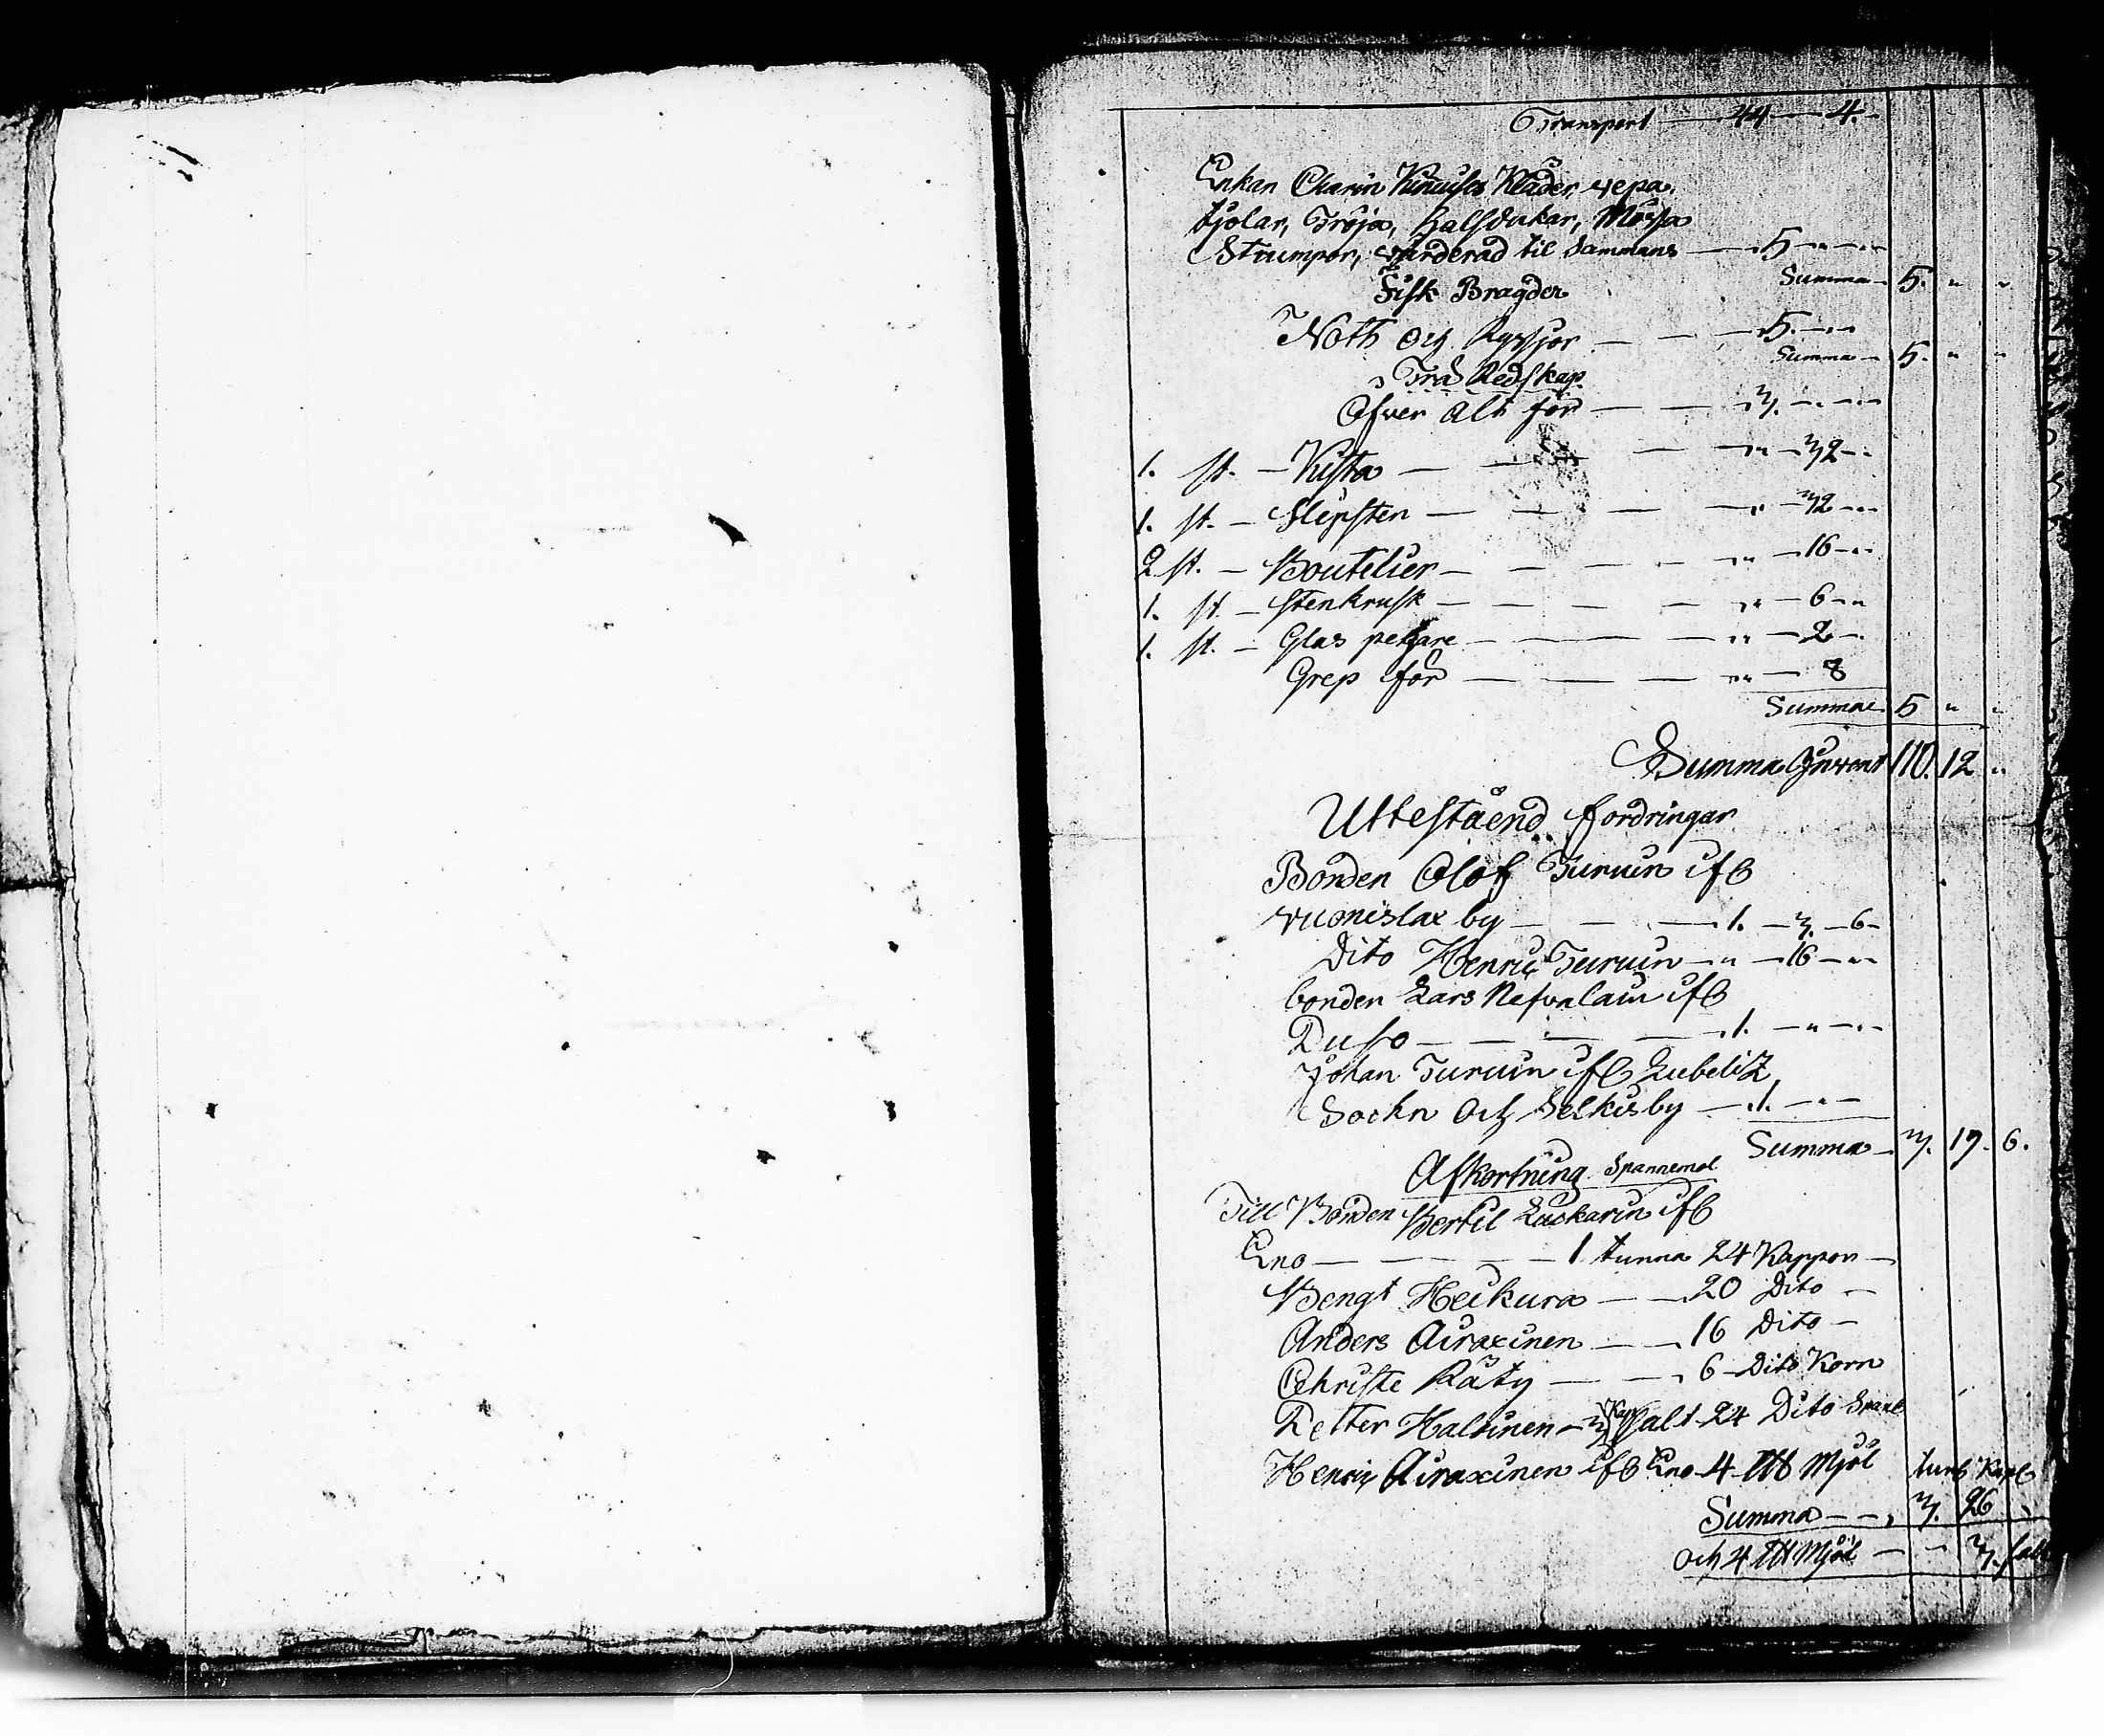 Transport — 44 — 4.
Enkan Charin Kinnuisa Kläder, vepa,
kjolar, Tröja, halsdukar, Mössa
Strumpor, värderad til Sammans — 5 " "
Summa — 5. " "
Fisk Bragder
Noth och Ryssjor — 5. " "
Summa — 5. " "
Trä Redskap
Öfver alt för — 3. " "
1. st. — Kista — " — 32 "
1. st. — Slipsten — " — 32 "
2 st. — Boutelier — " — 16 "
1. st. — Stenkrusk — " — 6 "
1. st. — Glas petzare — " — 2 "
Grep för — " — 8
Summa 5 " "
Summa Invent 110. 12 "
Uttestäend fordringar
Bonden Olof Turuin ifr
Vuonislax by — 1. — 3. — 6
Dito Henric Turuin — " — 16 — "
bonden Lars Nefvalain ifr
Puso — 1. — " — "
Johan Turuin ifr Libelitz
Sockn och Selkis by — 1. — " —
Summa — 3. 19. 6.
Afkortning Spannemol
Till Bonden Bertil Lackarin ifr
Eno — 1 tunna 24 Kappor —
Bengt Heikura — 20 Dito —
Anders Airaxinen — 16 Dito —
Christe Räty — 6 Dito Korn
Petter Haltinen — 3 Kap Salt 24 Dito Spanl
Henric Airaxinen ifr Eno 4 LH Mjöl
tunr Kapr
Summa — 3. 26
och 4 LH Mjöl — 3. salt